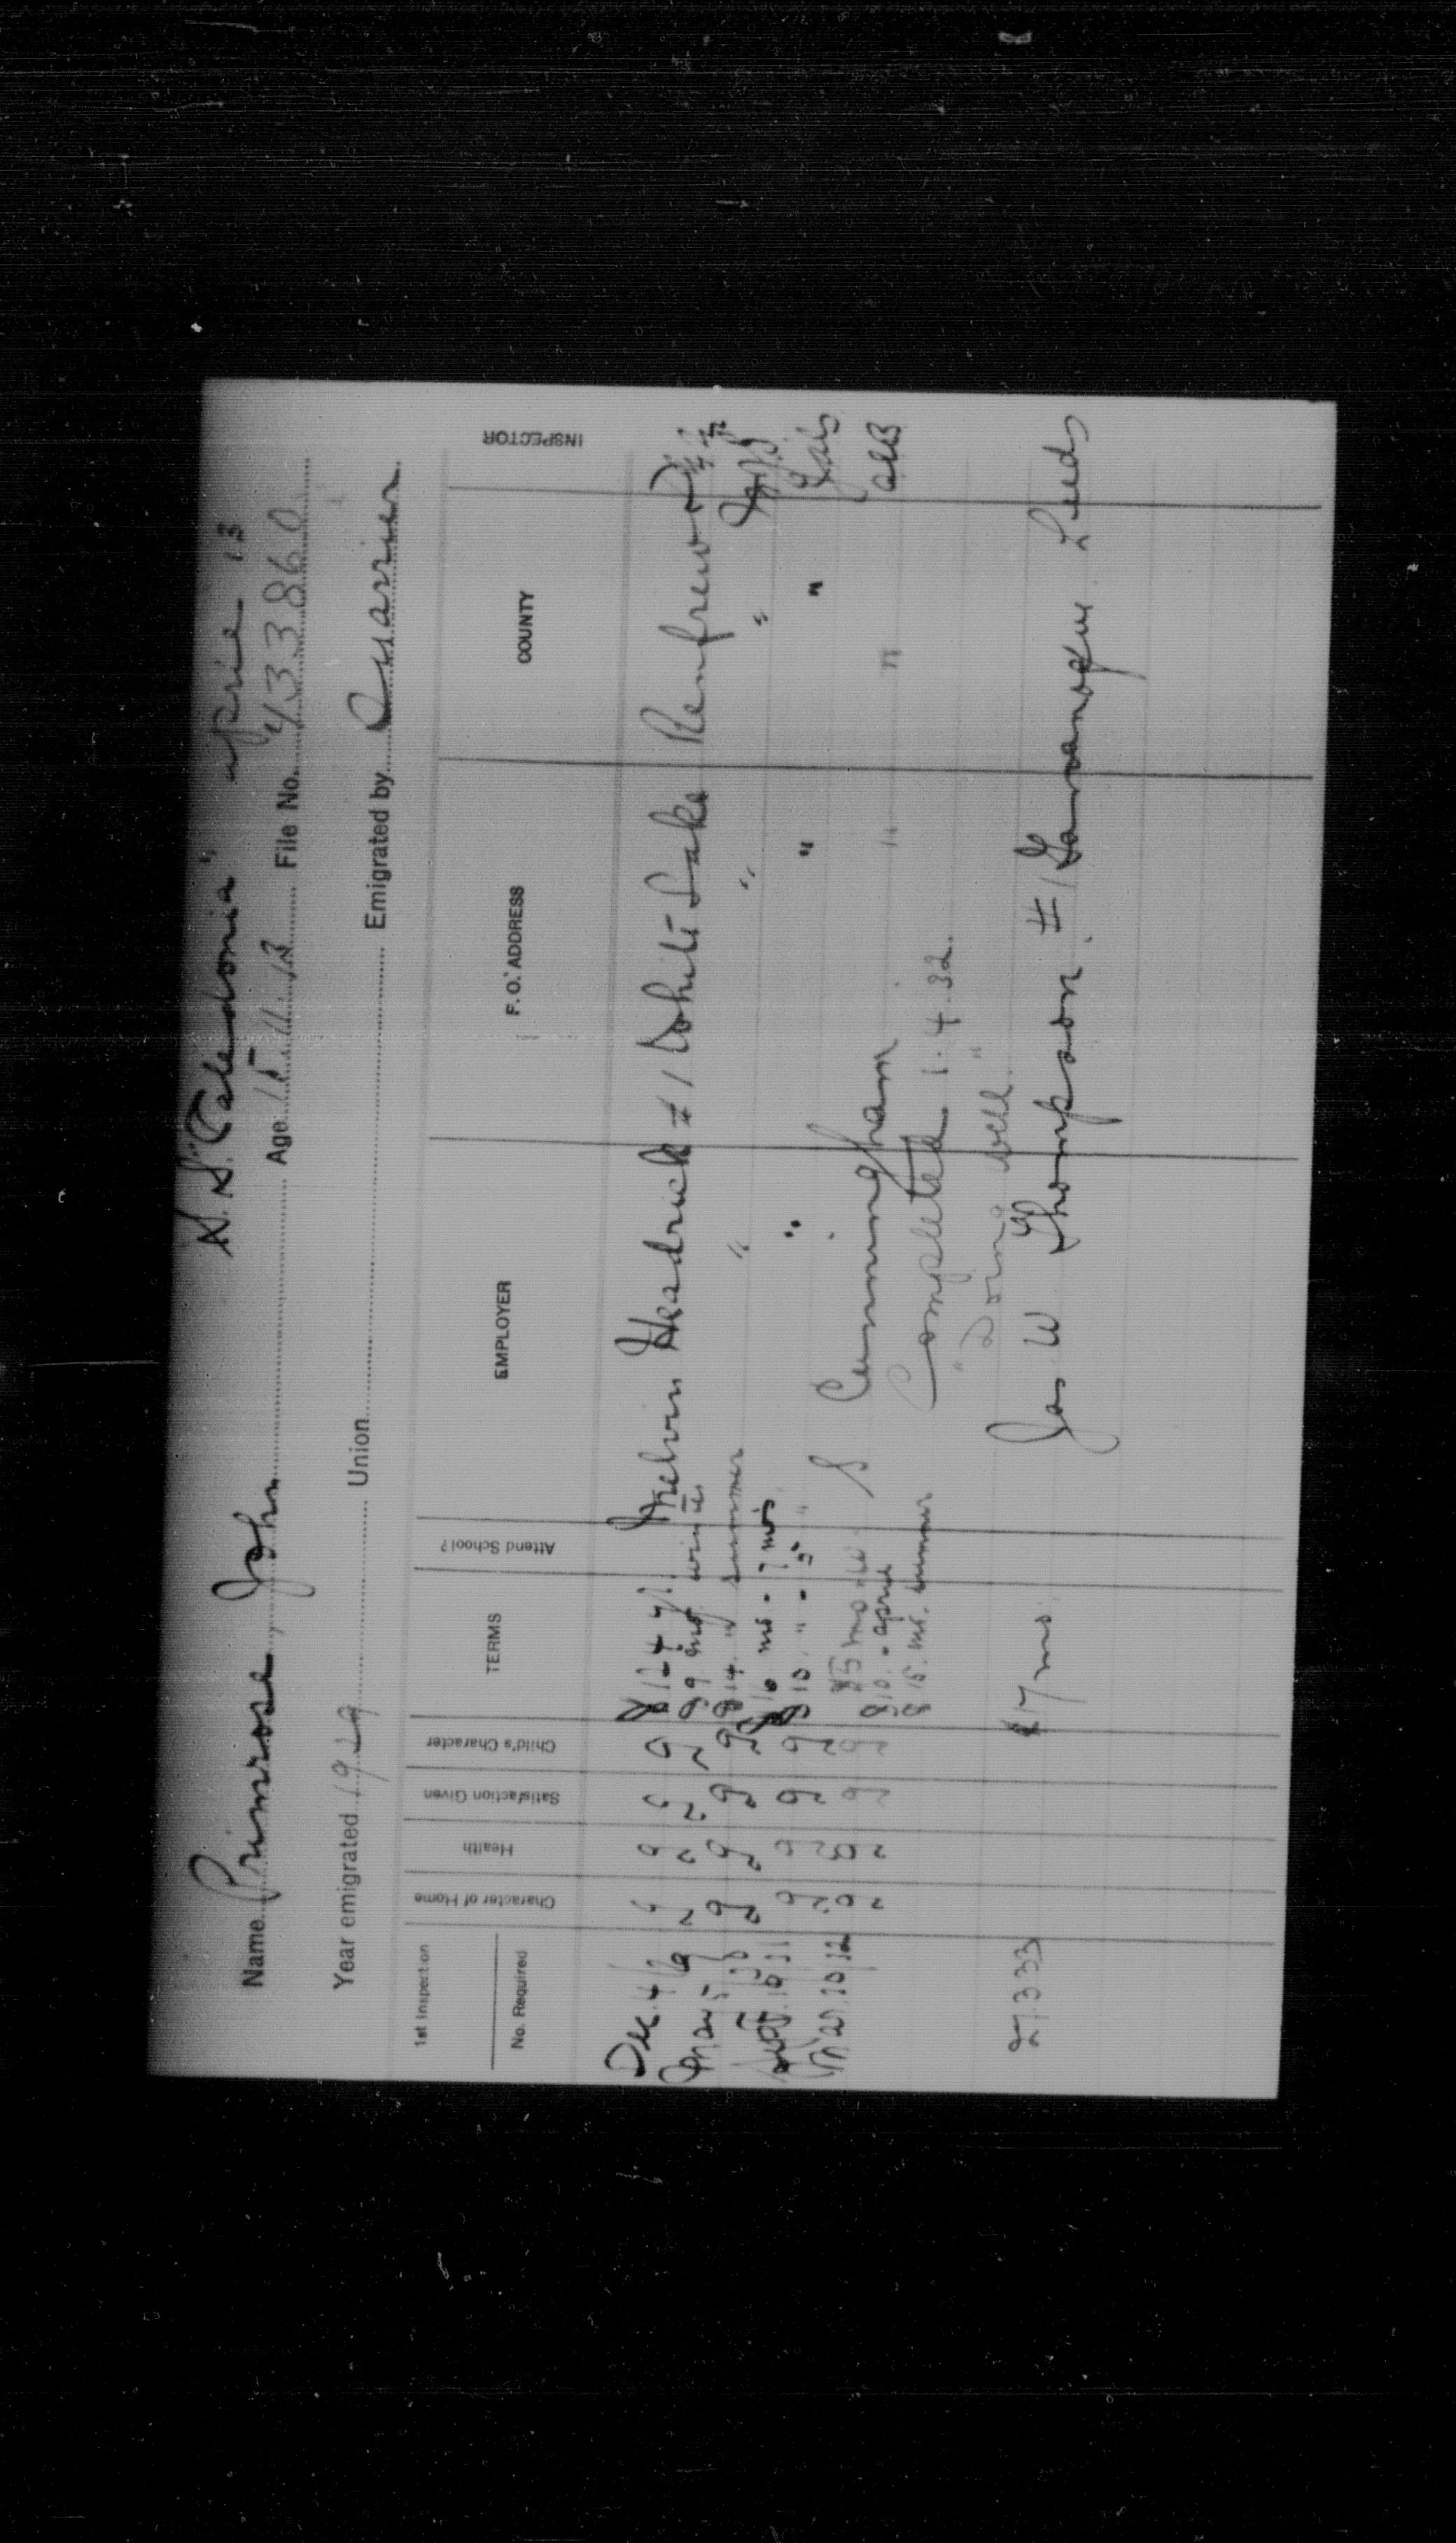 S.S. "Caledonia" April 13
Name Primrose, John Age 15 11.12 File No. 433860
Year emigrated 1929 Union Emigrated by Quarrier
1st Inspection
No. Required Character of Home Health Satisfaction Given Child's Character TERMS Attend School? EMPLOYER P. O. ADDRESS COUNTY INSPECTOR
Dec 4/29 G G G G $124 yr. Melvin Headrick #1 White Lake Renfrew
$9 mo winter
May 5/30 G G G G $14 " summer " " "
Sept. 19/31 G G G G $16 mo. - 7 mos. " " "
$10 " - 5 "
Mar. 30/32 G G G G $5 mo. W. S Cunningham " "
$10. - april Completed 1.4.32.
$15. mo. summer
"Doing well."
27.3.33 $17 mo. Jas. W Thompson #1 Gananoque Leeds